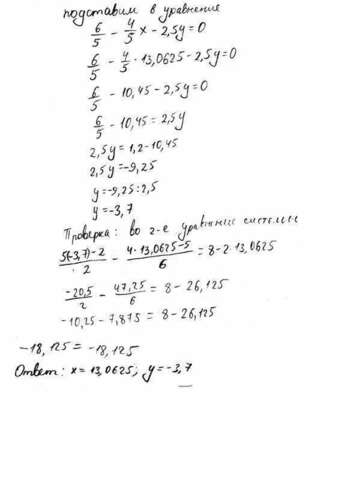 подставим в уравнение
6/5 - 4/5 x - 2,5y = 0
6/5 - 4/5 · 13,0625 - 2,5y = 0
6/5 - 10,45 - 2,5y = 0
6/5 - 10,45 = 2,5y
2,5y = 1,2 - 10,45
2,5y = -9,25
y = -9,25 : 2,5
y = -3,7
Проверка: во 2-е уравнение системы
5(-3,7)-2/2 - 4·13,0625-5/6 = 8-2·13,0625
-20,5/2 - 47,25/6 = 8 - 26,125
-10,25 - 7,875 = 8 - 26,125
-18,125 = -18,125
Ответ: x = 13,0625; y = -3,7